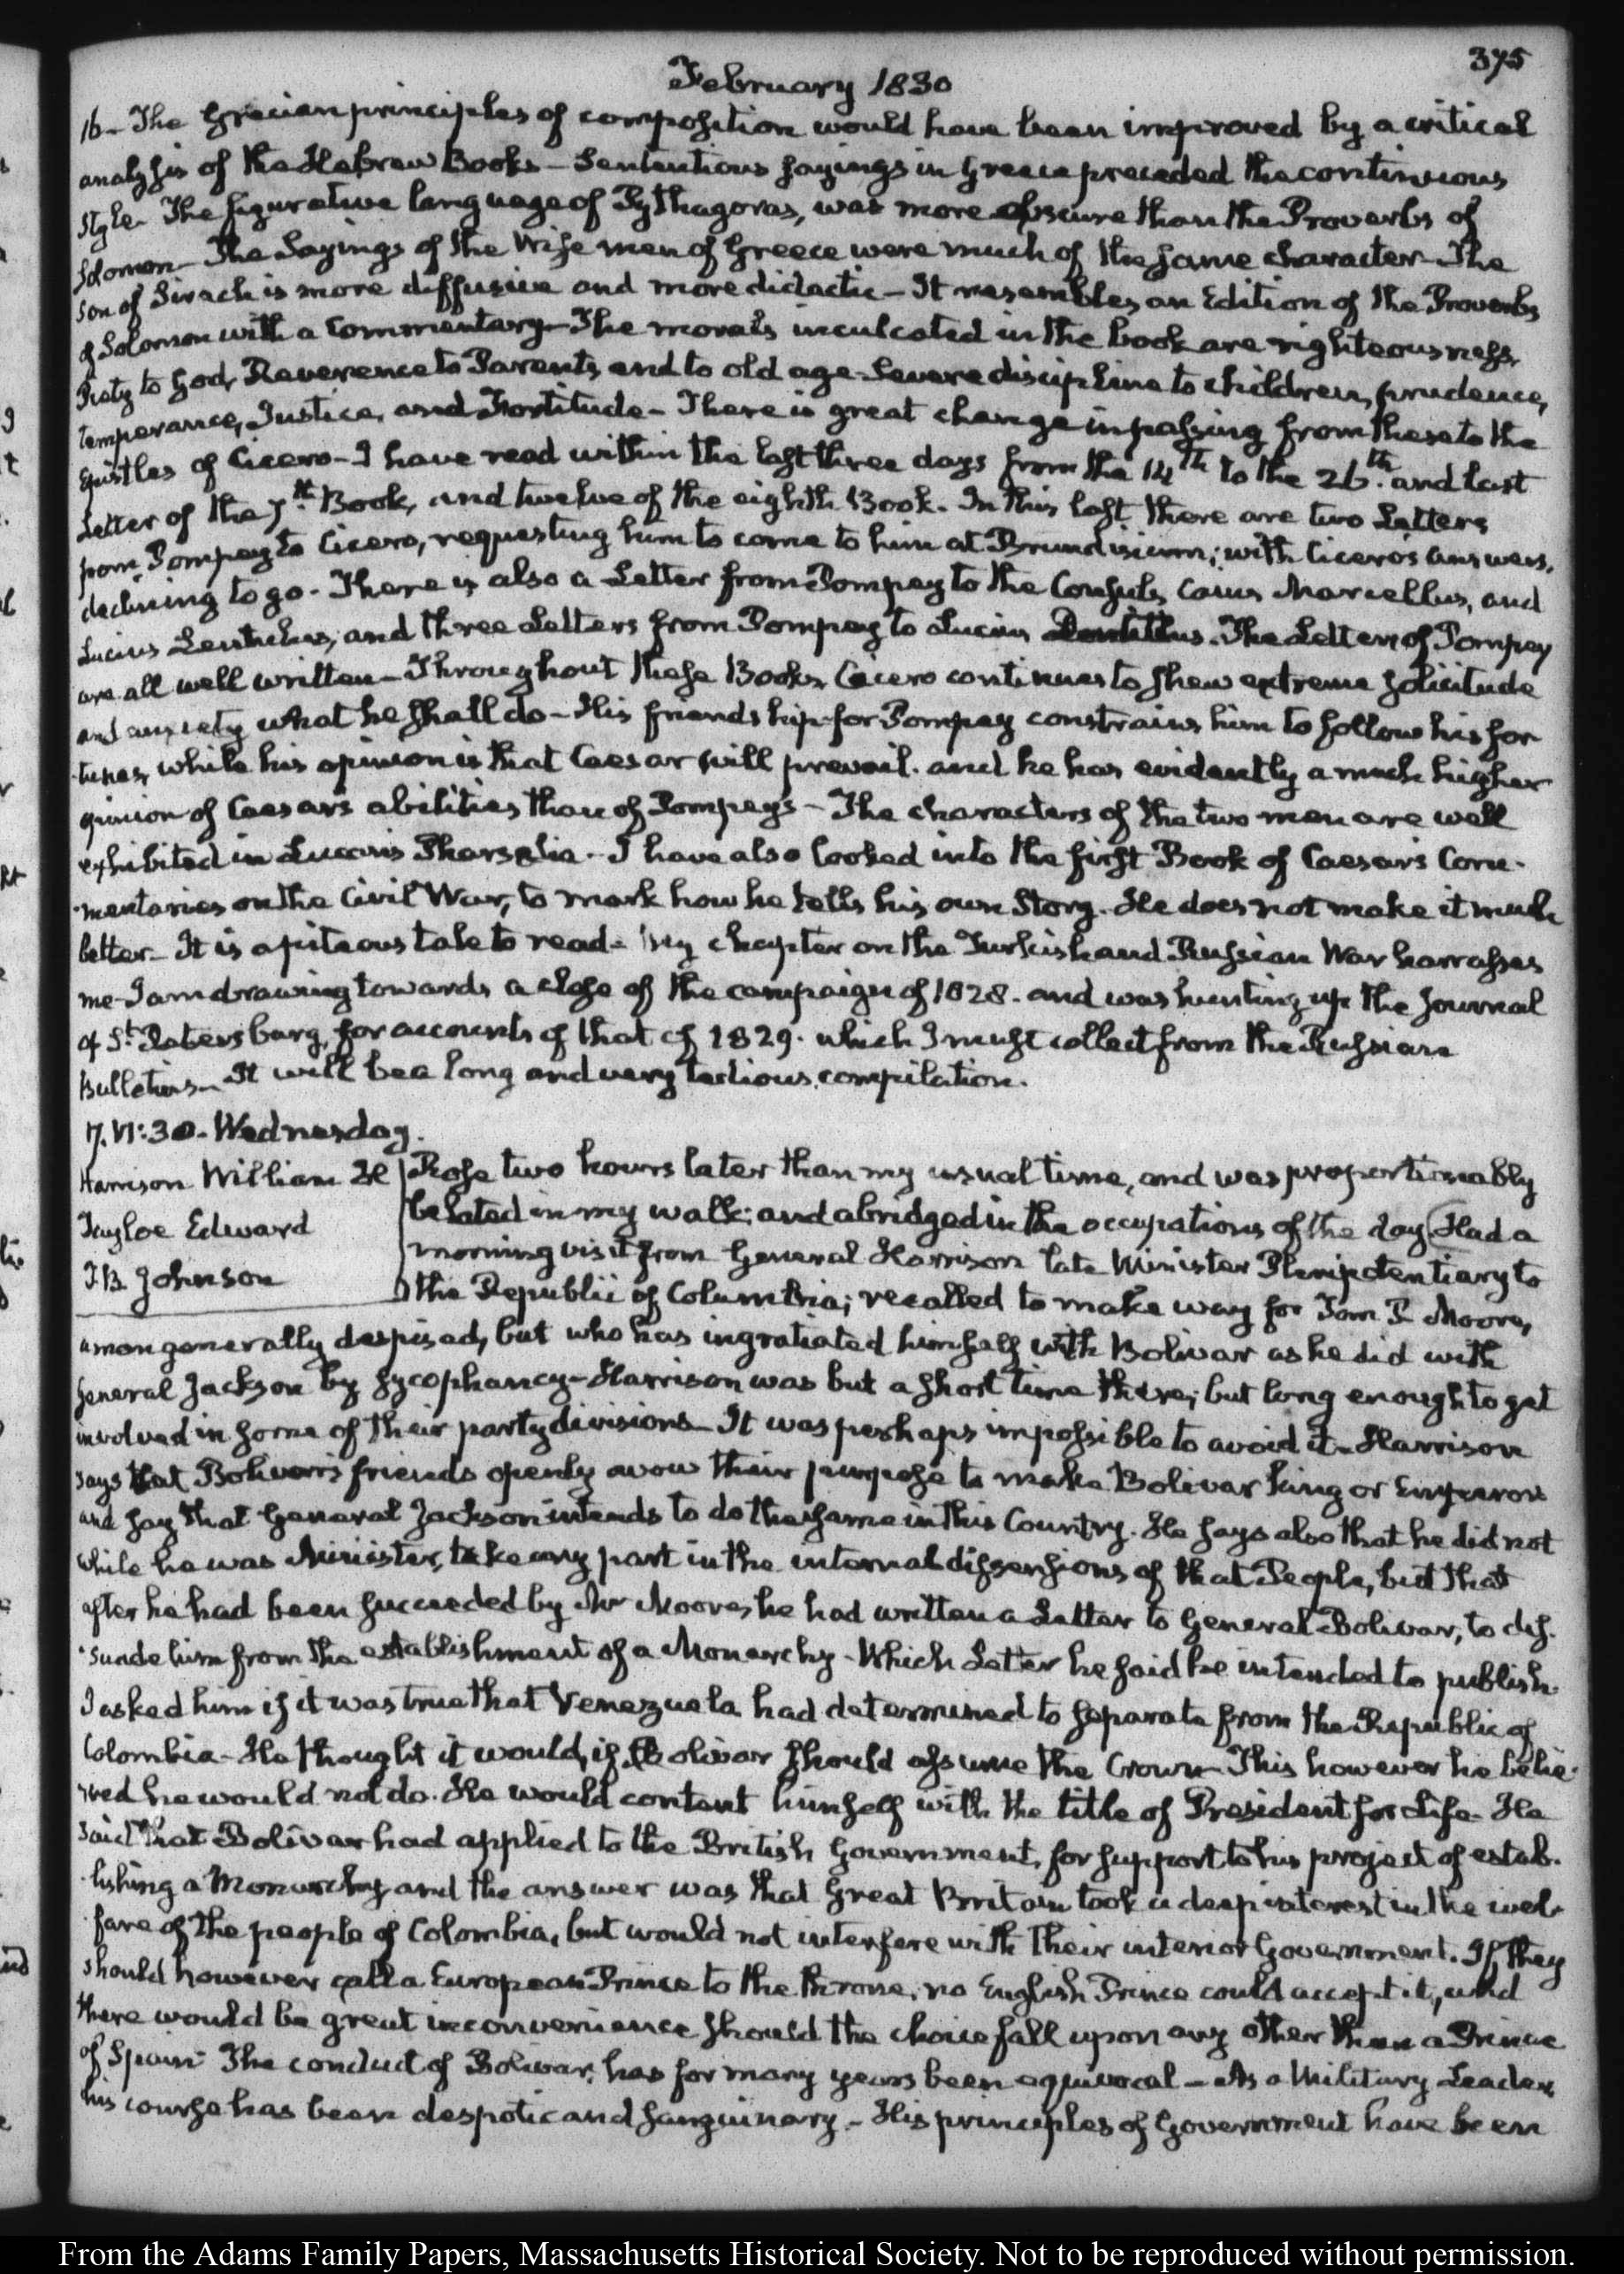 375
February 1830
16 – The Grecian principles of composition would have been improved by a critical
analysis of the Hebrew Books – Sententious sayings in Greece preceded the continuous
style. The figurative language of Pythagoras, was more obscure than the Proverbs of
Solomon – The Sayings of the Wise men of Greece were much of the same character – The
Son of Sirach is more diffusive and more didactic – It resembles an Edition of the Proverbs
of Solomon with a Commentary – The morals inculcated in the book are righteousness,
Piety to God, Reverence to Parents, and to old age – Severe discipline to children, prudence,
temperance, Justice, and Fortitude – There is great change in passing from these to the
Epistles of Cicero – I have read within the last three days from the 14th to the 26th and last
Letter of the 7th Book, and twelve of the eighth Book. In this last there are two Letters
from Pompey to Cicero, requesting him to come to him at Brundisium; with Cicero's answers,
declining to go. There is also a Letter from Pompey to the Consuls, Caius Marcellus, and
Lucius Lentulus, and three Letters from Pompey to Lucius Domitius. The Letters of Pompey
are all well written – Throughout these Books, Cicero continues to shew extreme solicitude
and anxiety what he shall do – His friendship for Pompey constrains him to follow his for
-tunes, while his opinion is that Caesar will prevail. and he has evidently a much higher
opinion of Caesar's abilities than of Pompey's – The characters of the two men are well
exhibited in Lucan's Pharsalia. I have also looked into the first Book of Caesar's Com-
-mentaries on the Civil War, to mark how he tells his own Story. He does not make it much
better – It is a piteous tale to read – My chapter on the Turkish and Russian War harrasses
me – I am drawing towards a close of the campaign of 1828. and was hunting up the Journal
of St. Petersburg, for accounts of that of 1829. which I must collect from the Russian
Bulletins – It will be a long and very tedious compilation.
17. VI: 30. Wednesday.
Harrison William H
Tayloe Edward
J B Johnson
Rose two hours later than my usual time, and was proportionably
belated in my walk; and abridged in the occupations of the day. Had a
morning visit from General Harrison late Minister Plenipotentiary to
the Republic of Columbia; recalled to make way for Tom P. Moore,
a man generally despised, but who has ingratiated himself with Bolivar as he did with
General Jackson by sycophancy – Harrison was but a short time there; but long enough to get
involved in some of their party divisions – It was perhaps impossible to avoid it – Harrison
says that Bolivar's friends openly avow their purpose to make Bolivar King or Emperor
and say that General Jackson intends to do the same in this Country. He says also that he did not
while he was Minister, take any part in the internal dissensions of that People, but that
after he had been succeeded by Mr Moore, he had written a Letter to General Bolivar, to dis-
-suade him from the establishment of a Monarchy – Which Letter he said he intended to publish.
I asked him if it was true that Venezuela had determined to separate from the Republic of
Colombia – He thought it would, if Bolivar should assume the Crown – This however he belie-
-ved he would not do. He would content himself with the title of President for Life. He
said that Bolivar had applied to the British Government, for support to his project of estab-
-lishing a Monarchy and the answer was that Great Britain took a deep interest in the wel-
-fare of the people of Colombia, but would not interfere with their interior Government. If they
should however call a European Prince to the throne, no English Prince could accept it, and
there would be great inconvenience should the choice fall upon any other than a Prince
of Spain – The conduct of Bolivar, has for many years been equivocal – As a Military Leader,
his course has been despotic and sanguinary – His principles of Government have been
From the Adams Family Papers, Massachusetts Historical Society. Not to be reproduced without permission.